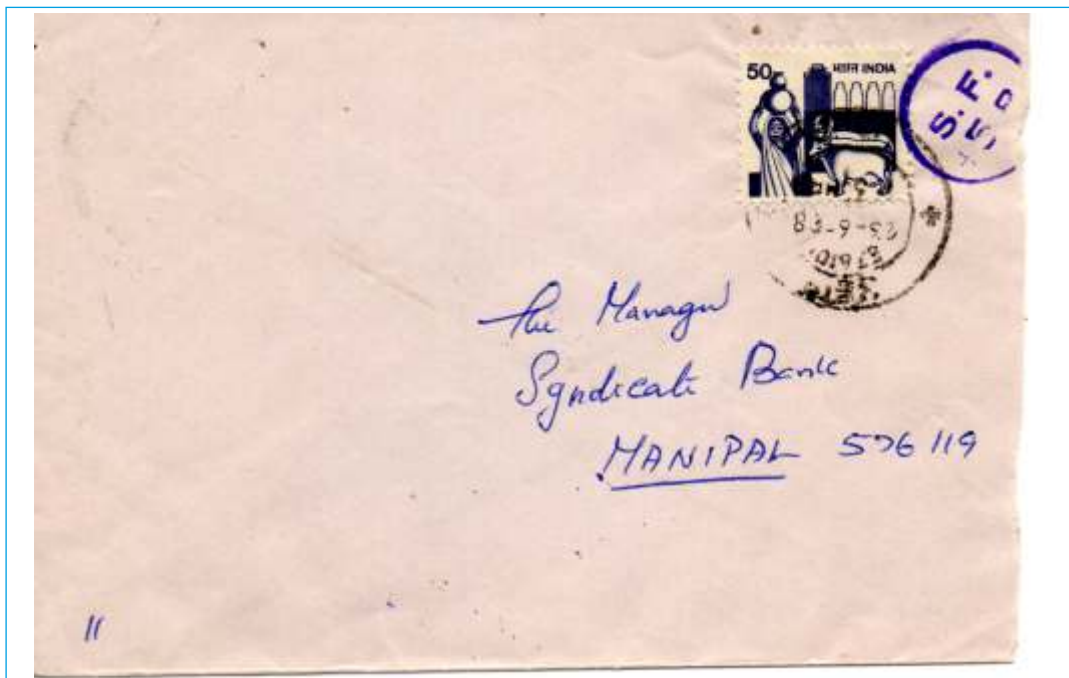 50
भारत INDIA
S.F.
The Manager
Syndicate Bank
MANIPAL 576 119
11